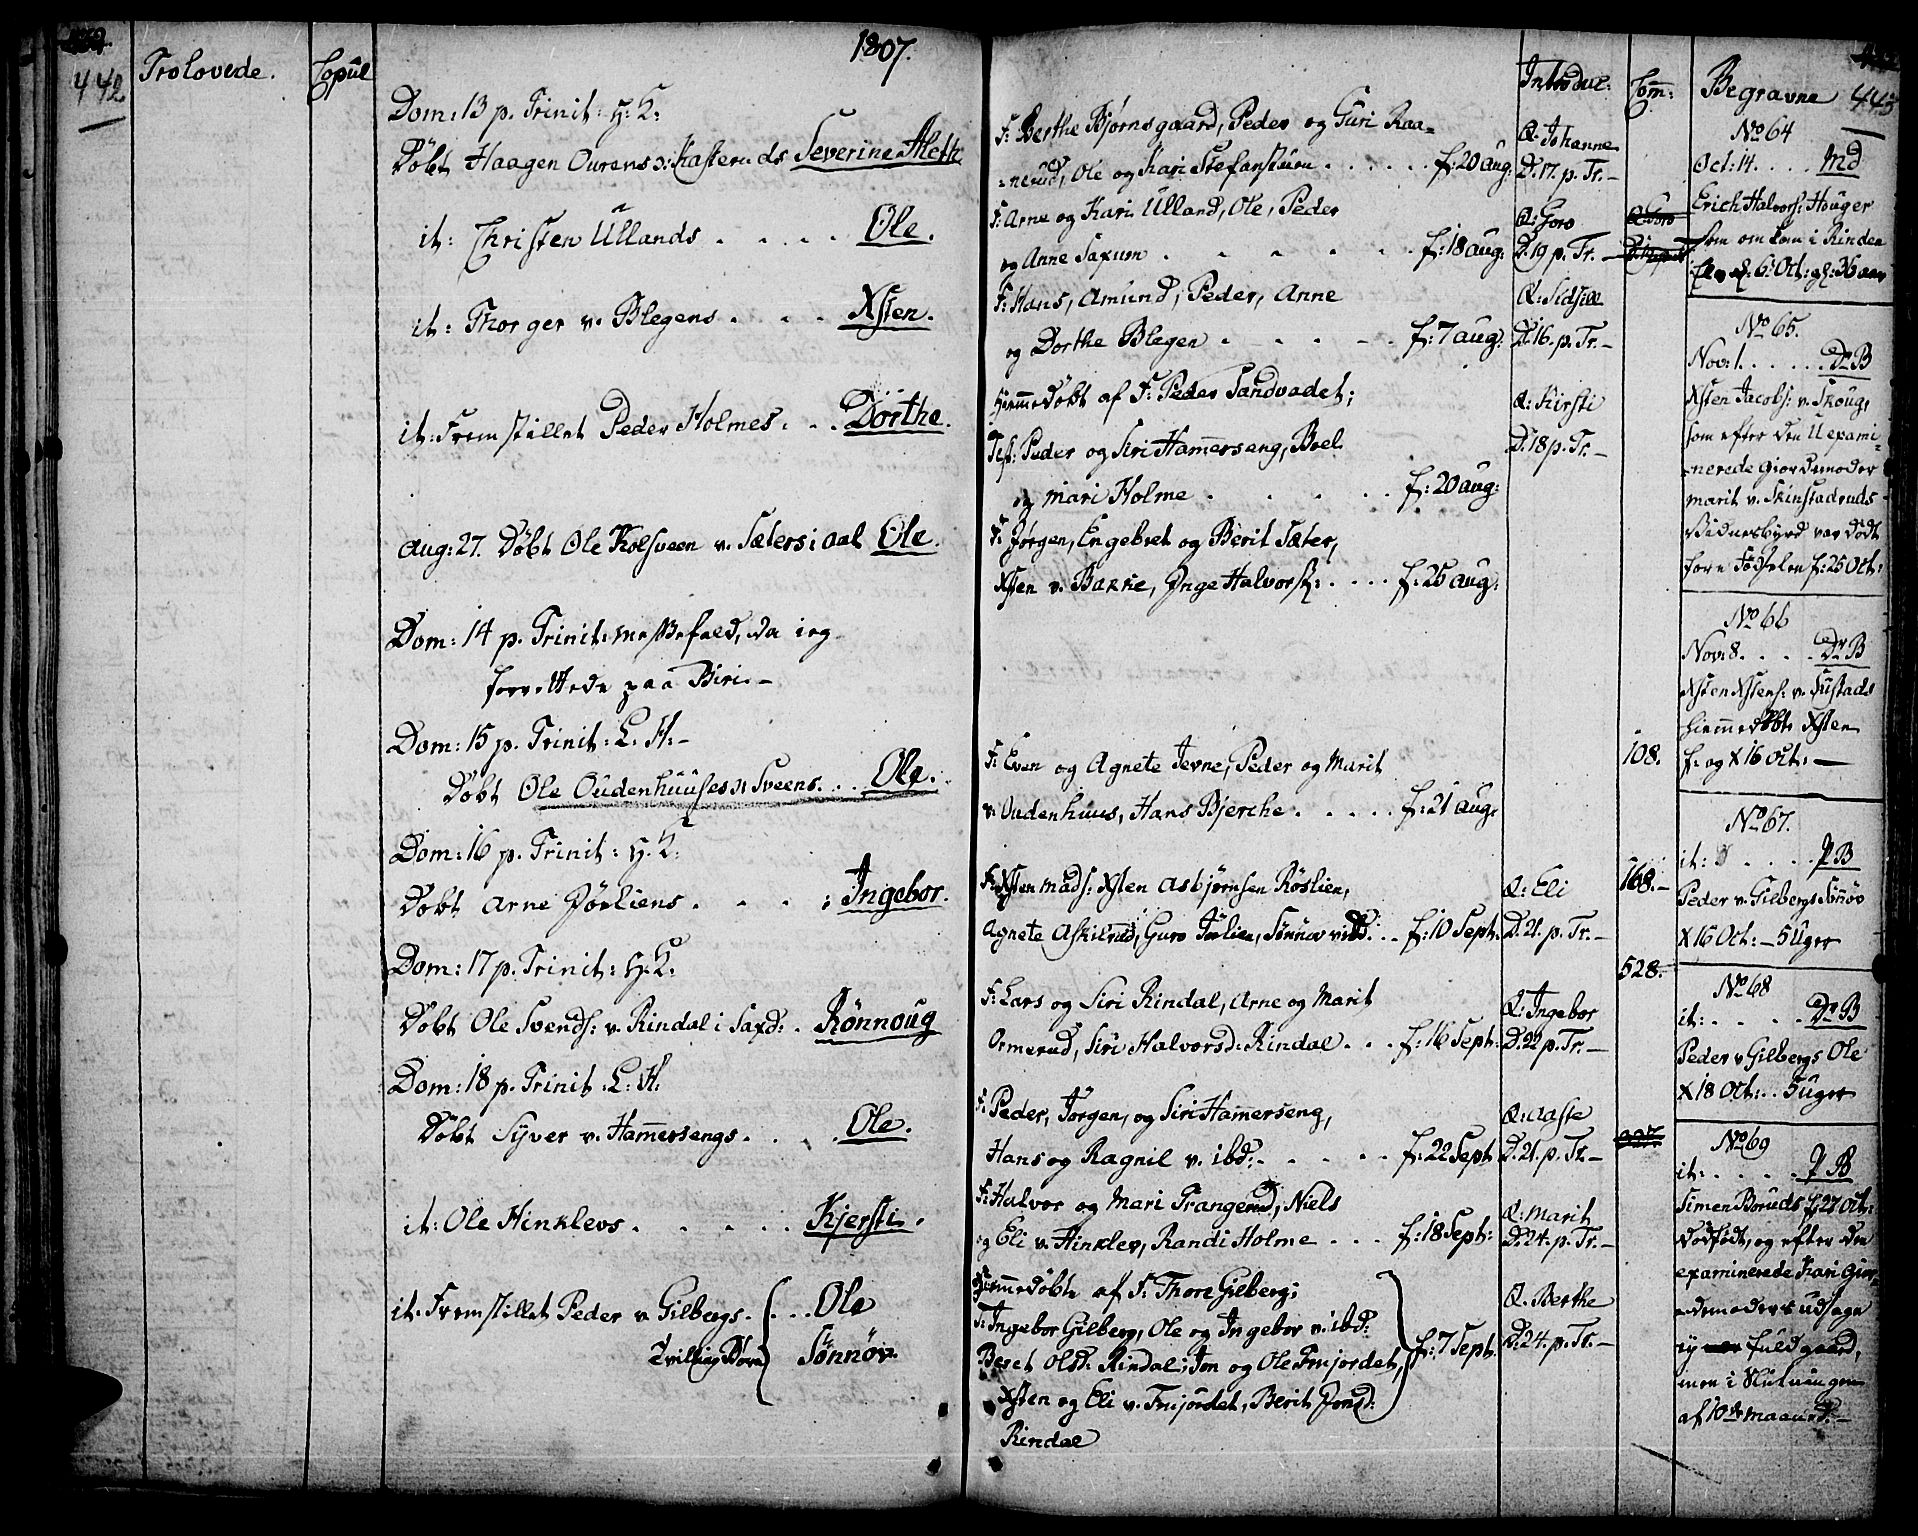 442
Trolovede.
Copul
1807.
Dom: 13 p. Trinit: H. K:
Døbt Haagen Ourens Kasteruds Severine Aleth
it: Christen Ullands . . . . Ole.
it: Thorger v. Blegens . . . . Xsten.
it: Fremstillet Peder Holmes. . . Dorthe.
Aug: 27. Døbt Ole Kolsveen v. Sæters i Aal Ole.
Dom: 14 p. Trinit: Messefald, da ieg
forrettede paa Biri. –
Dom: 15 p. Trinit: L. H. –
Døbt Ole Oudenhuuses Sveens. . . Ole.
Dom: 16 p. Trinit: H. K:
Døbt Arne Dørliens . . . . Ingebor.
Dom: 17 p. Trinit: H. K:
Døbt Ole Svends: v. Rindal i Saxd: . Rönnoug
Dom: 18 p. Trinit: L. H.
Døbt Syver v. Hammersengs. . . . Ole.
it: Ole Hinklevs . . . . . Kjersti.
it: Fremstillet Peder v Gilbergs. . . . Ole
Tvilling Børn Sönnöv.
F: Berthe Bjørnsgaard, Peder og Guri Raa=
=nerud, Ole og Kari Stefanstuen . . . . . f: 20 Aug:
F: Arne og Kari Ulland, Ole, Peder
og Anne Saxum . . . . . . f: 18 Aug:
F: Hans, Amund, Peder, Anne
og Dorthe Blegen . . . . . f: 7 Aug:
Hjemmedøbt af F: Peder Sandvadet;
Test: Peder og Siri Hammerseng, Boel
og Mari Holme . . . . . f: 20 Aug:
F: Jørgen, Engebret og Berit Sæter,
Xsten v. Bakke, Inge Halvorsd: . . . . f: 25 Aug:
F: Even og Agnete Jevne, Peder og Marit
v. Oudenhuus, Hans Bjerche . . . . . f: 21 Aug:
F: Xsten Mads: Xsten Asbjørnsen Röslien,
Agnete Askilrud, Guro Dørlien, Sönnöv v ibd. . . f: 10 Sept:
F: Lars og Siri Rindal, Arne og Marit
Ormerud, Siri Halvorsd: Rindal . . . f: 16 Sept:
F: Peder, Jørgen, og Siri Hamerseng,
Hans og Ragnil v. ibd: . . . . . f: 22 Sept
F: Halvor og Mari Trangerud, Niels
og Eli v. Hinklev, Randi Holme . . . f: 18 Sept:
Hjemmedøbt af F: Thore Gilberg;
T: Ingebor Gilberg, Ole og Ingebor v. ibd:
Beret Olsd: Rindal; Jon og Ole Frujordet,
Xsten og Eli v. Frujordet, Berit Jonsd:
Rindal
f: 7 Sept.
Introduc:
Q: Johanne
D. 17. p. Tr. –
Q: Goro
D. 19 p. Tr. –
Q: Sidsell
D. 16. p. Tr. –
Q: Kirsti
D. 18 p. Tr. –
Q: Eli
D. 21. p. Tr. –
Q: Ingebor
D. 22 p. Tr. –
Q: Aasse
D. 21. p. Tr. –
Q: Marit
D. 24. p. Tr. –
Q. Berthe
D. 24. p. Tr. –
Com:
Q. Goro
108.
168. –
528.
Begravne 443
No 64
Oct: 14. . . . . MD
Erich Halvors: Houger
som omkom i Rinden
Elv d. 6: Oct: gl: 36 aar
No 65.
Nov: 1. . . . . . Dr B
Xsten Jacobs: v. Skoug,
som efter den Uexami=
=nerede Giordemoder
Marit v. Skinstaderuds
Vidnesbyrd var død
før Födselen f: 25 Oct:
No 66
Nov: 8. . . . Dr B
Xsten Xstens: v. Sustads
hjemmedøbt Xsten
f. og X 16 Oct: –
No 67.
it: . . . . P B
Peder v. Gilbergs Sönnöv
X 16 Oct: – 5 Uger
No 68
it: . . . . . Dr B
Peder v Gilbergs Ole
X 18 Oct: . . 5 Uger
No 69
it: . . . . . P B
Simen Boruds f: 27 Oct:
dødfødt, og efter den
examinerede Kari Gior=
=demoders udsagn
ej fuldgaard,
men i Slutningen
af 10de Maaned. –